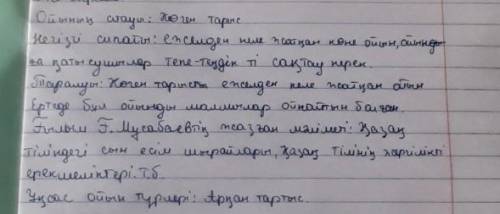 Ойынның атауы: Көген тарыс
Негізгі сипаты: ежелден келе жатқан көне ойын, ойынды
ға қатысушылар тепе-теңдік ті сақтау керек.
Таралуы: Көген тарысы ежелден келе жатқан ойын
Ертеде бұл ойынды малшылар ойнайтын болған.
Ғылыми Ғ. Мұсабаевтің жазған мәліметі: Қазақ
тіліндегі сын есім шырайлары, Қазақ тілінің жергілікті
ерекшеліктері. Т.б.
Ұқсас ойын түрлері: Арқан тартыс.